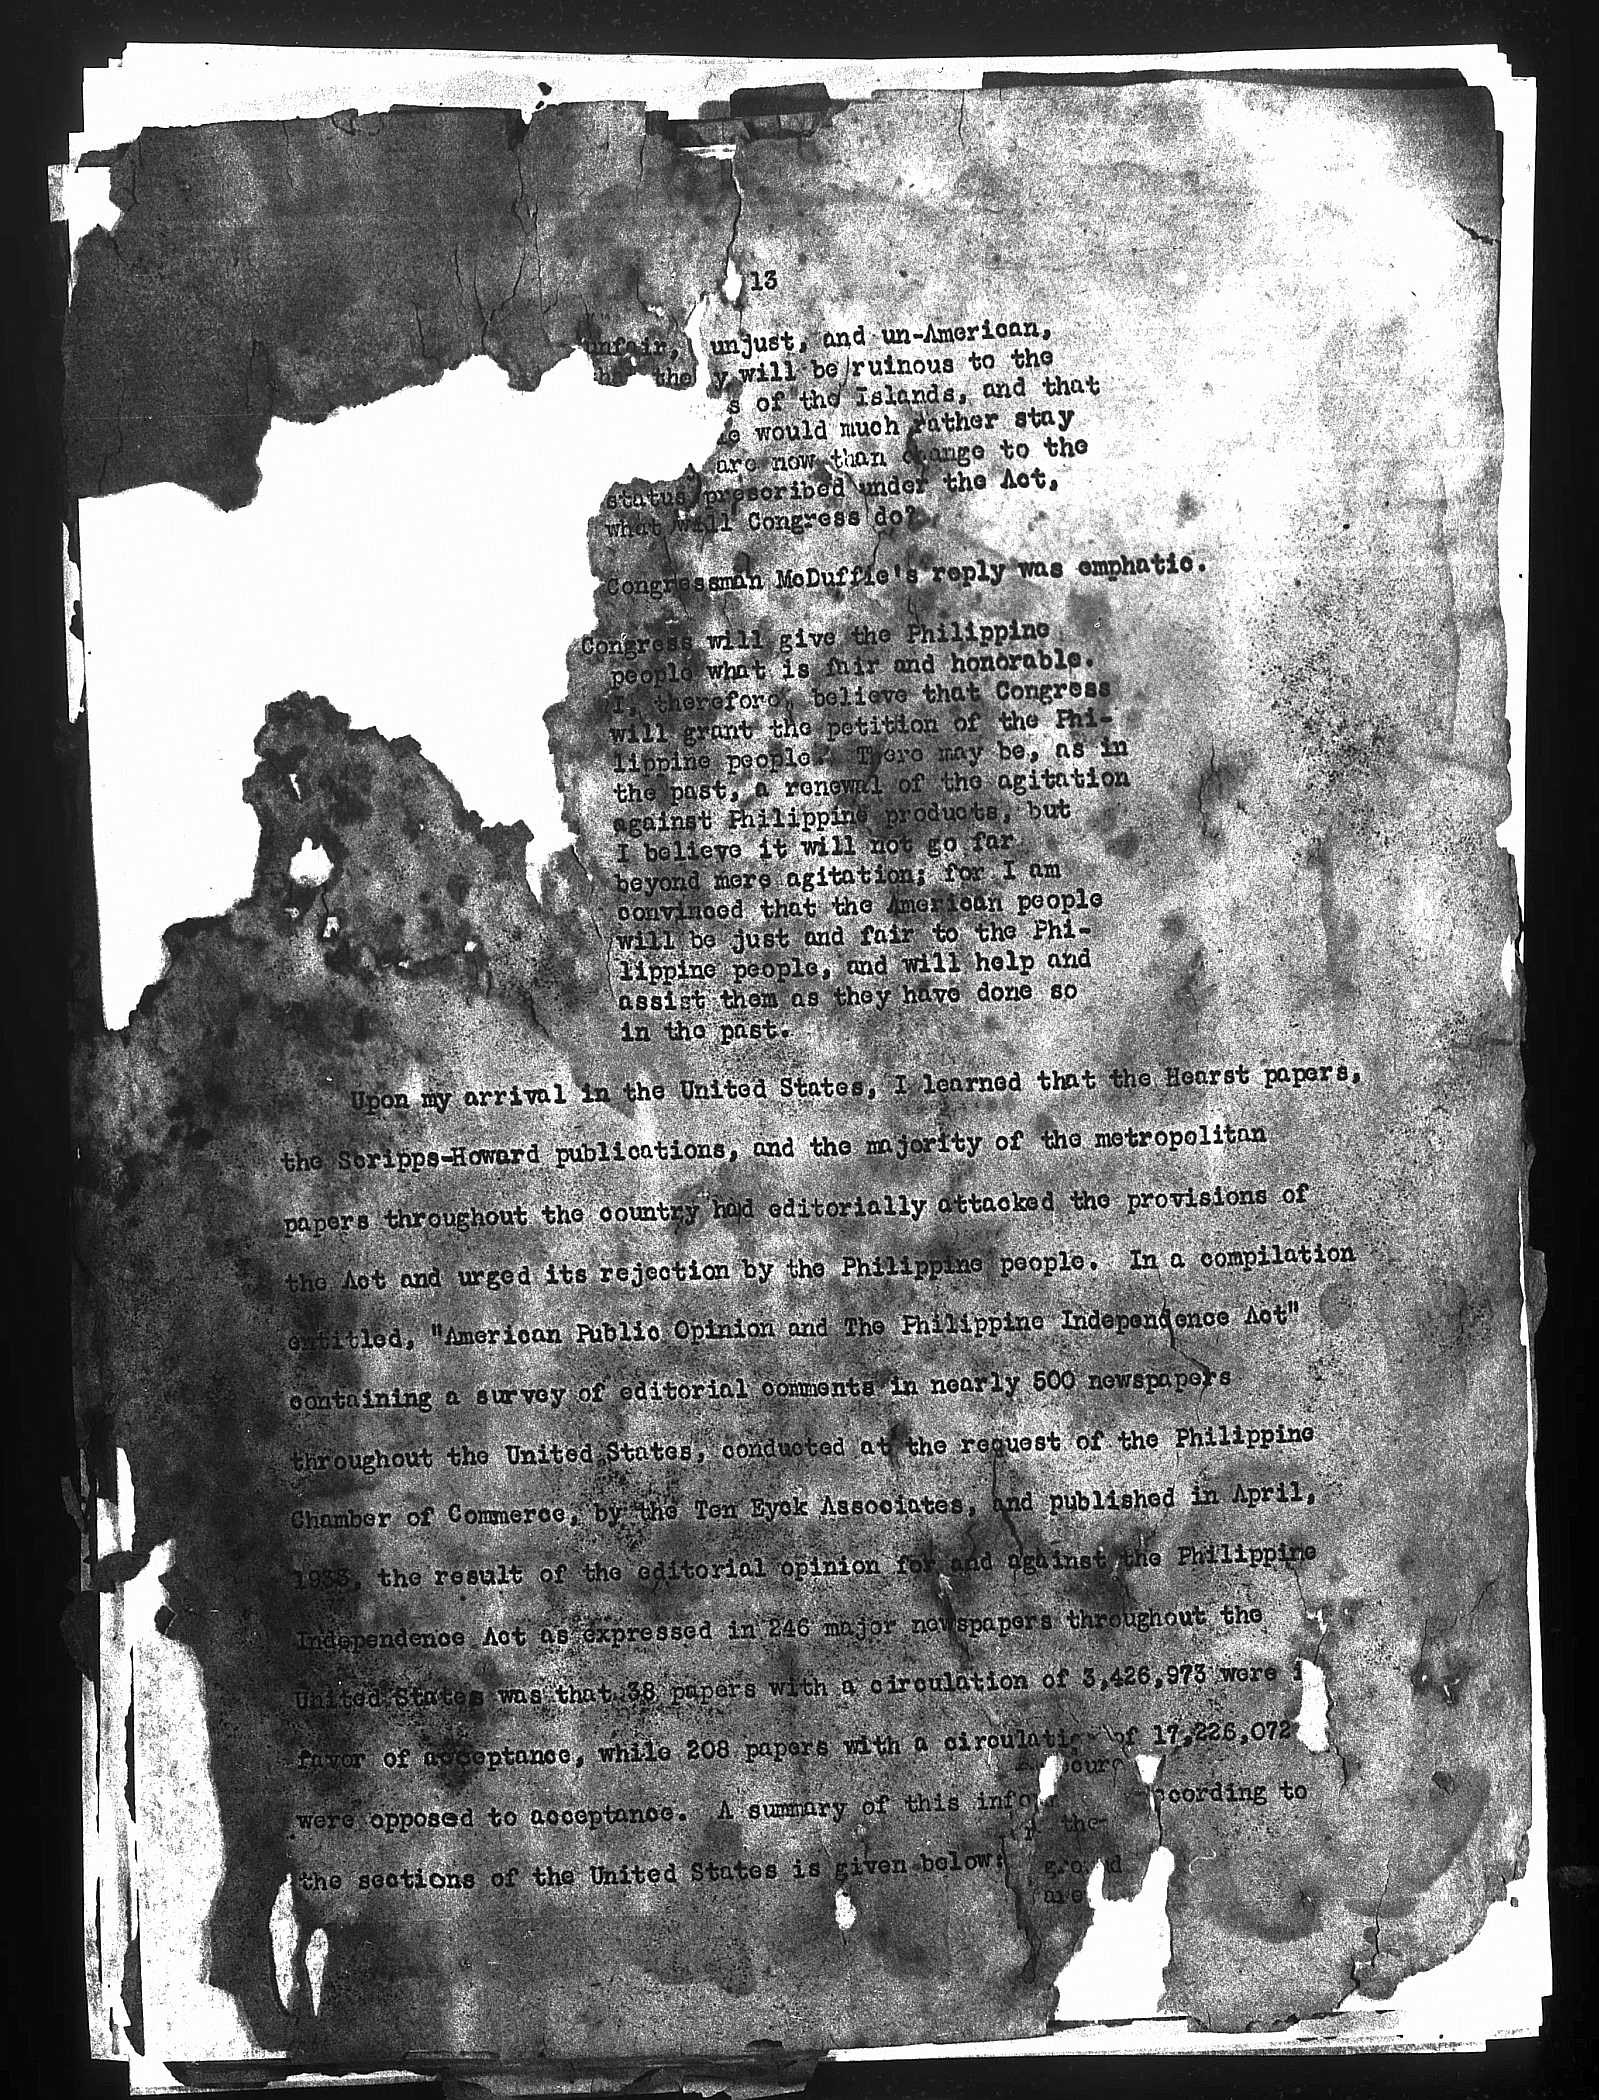 13
unfair, unjust, and un-American,
they will be ruinous to the
of the Islands, and that
would much rather stay
are now than change to the
status prescribed under the Act,
what will Congress do?
Congressman McDuffie's reply was emphatic.
Congress will give the Philippine
people what is fair and honorable.
I, therefore, believe that Congress
will grant the petition of the Phi-
lippine people. There may be, as in
the past, a renewal of the agitation
against Philippine products, but
I believe it will not go far
beyond mere agitation; for I am
convinced that the American people
will be just and fair to the Phi-
lippine people, and will help and
assist them as they have done so
in the past.
Upon my arrival in the United States, I learned that the Hearst papers,
the Scripps-Howard publications, and the majority of the metropolitan
papers throughout the country had editorially attacked the provisions of
the Act and urged its rejection by the Philippine people. In a compilation
entitled, "American Public Opinion and The Philippine Independence Act"
containing a survey of editorial comments in nearly 500 newspapers
throughout the United States, conducted at the request of the Philippine
Chamber of Commerce, by the Ten Eyck Associates, and published in April,
1933, the result of the editorial opinion for and against the Philippine
Independence Act as expressed in 246 major newspapers throughout the
United States was that 38 papers with a circulation of 3,426,973 were
favor of acceptance, while 208 papers with a circulation of 17,226,072
were opposed to acceptance. A summary of this according to
the
the sections of the United States is given below:
ground